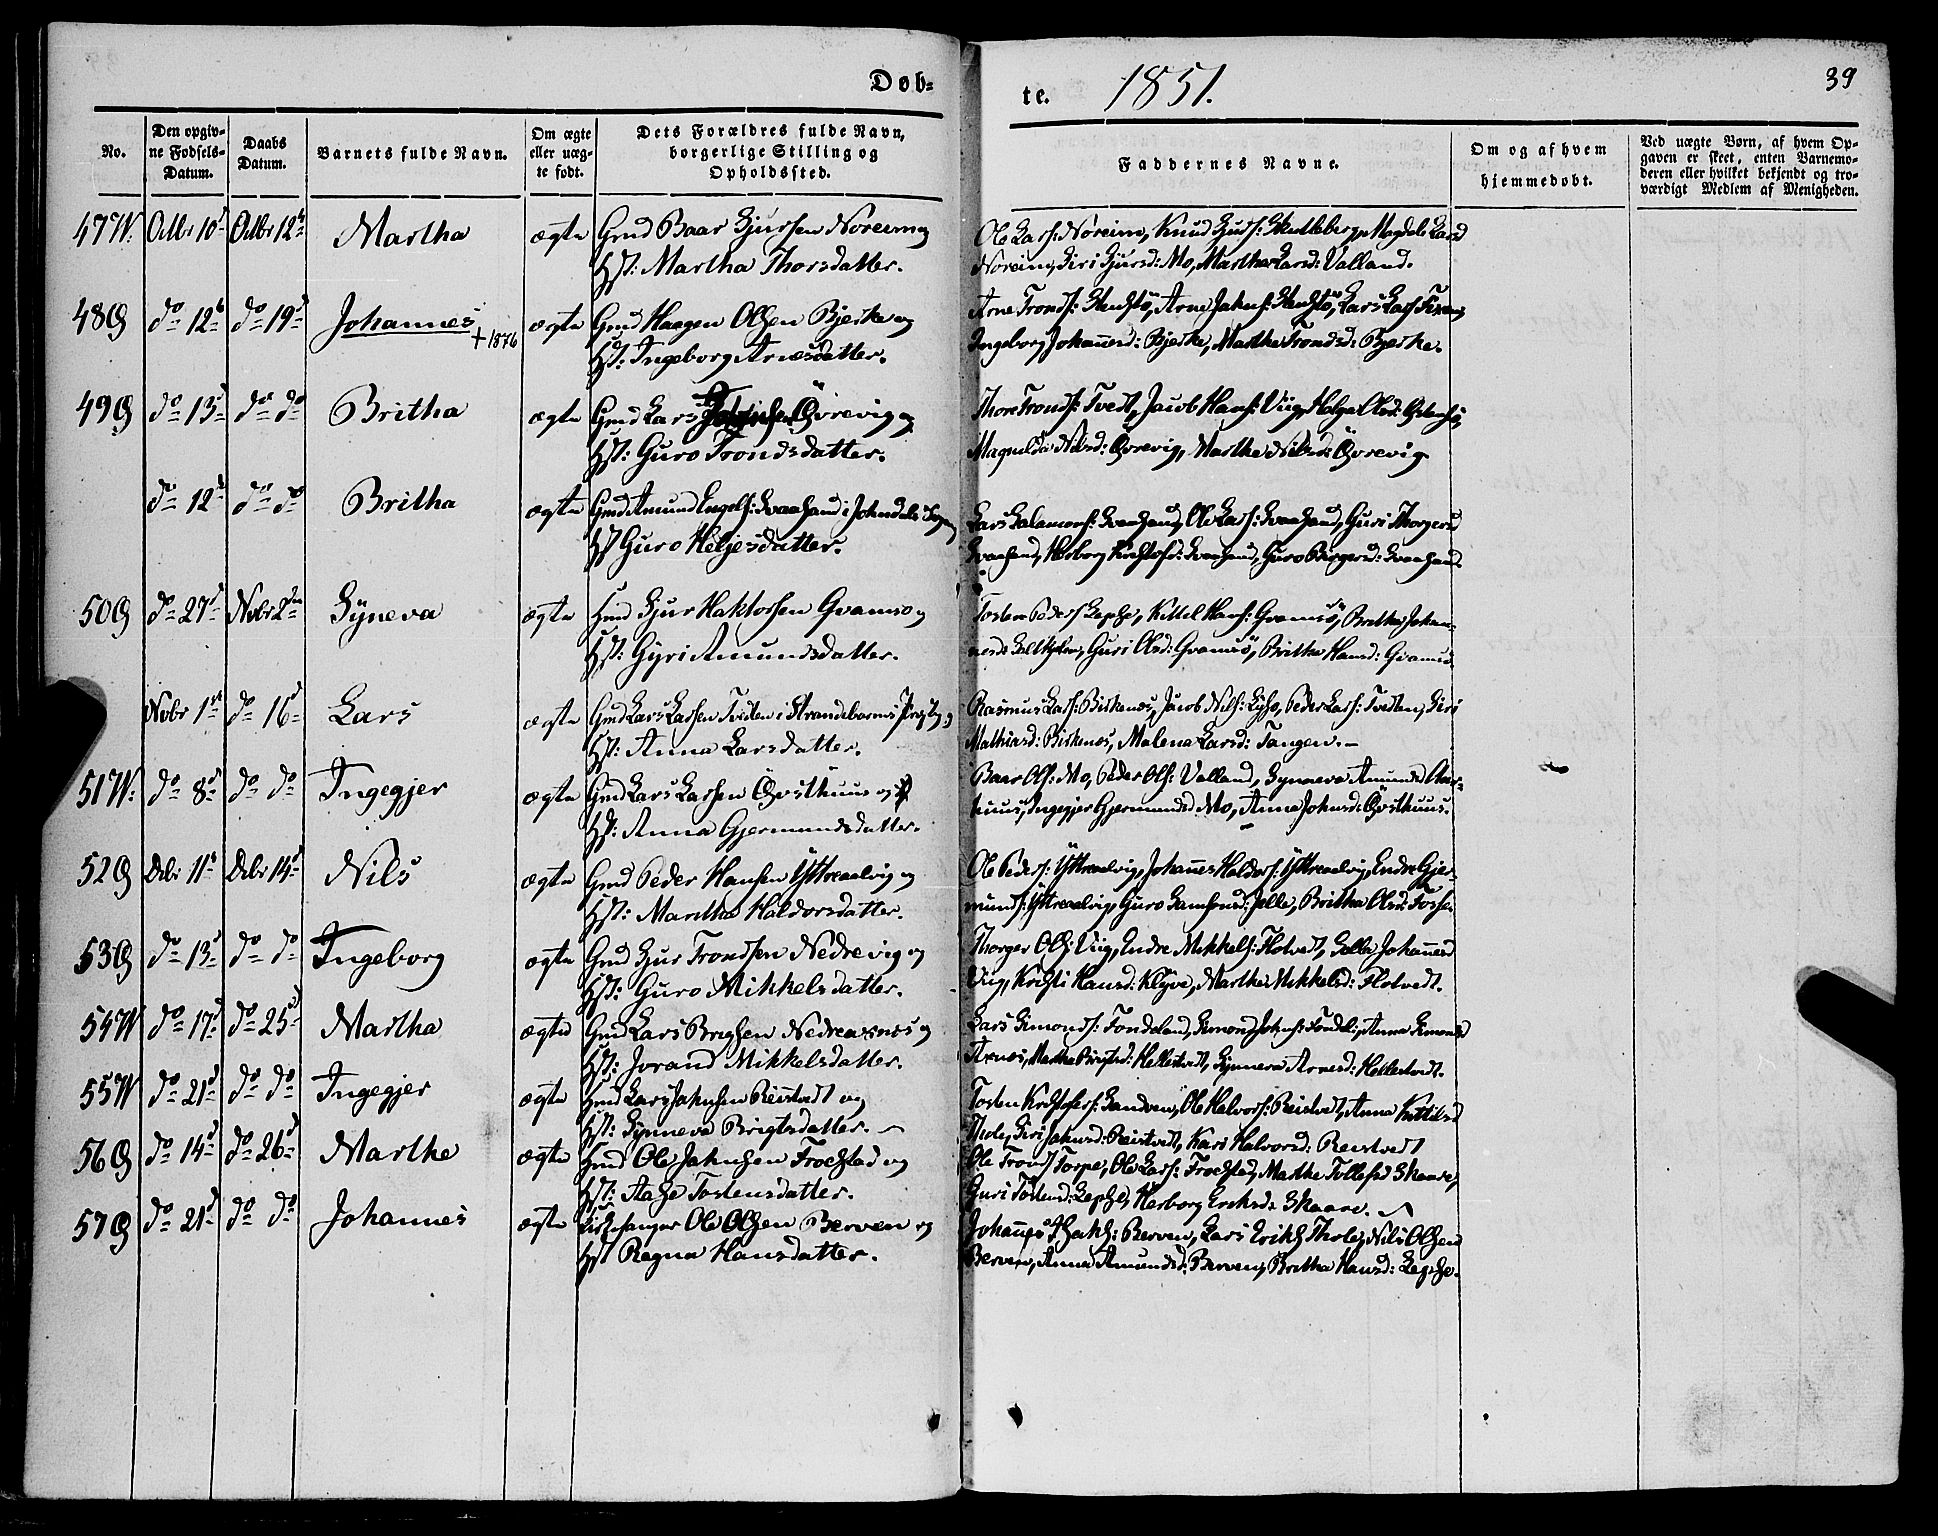 Døb=
te. 1851.
39
No.
Den opgiv-
ne Fødsels-
Datum.
Daabs
Datum.
Barnets fulde Navn.
Om ægte
eller uæg-
te født.
Dets Forældres fulde Navn,
borgerlige Stilling og
Opholdssted.
Faddernes Navne.
Om og af hvem
hjemmedøbt.
Ved uægte Børn, af hvem Op-
gaven er skeet, enten Barnemo-
deren eller hvilket bekjendt og tro-
værdigt Medlem af Menigheden.
47 W. Octbr 10 Octbr 12 Martha ægte Gmd Baar Sjursen Noreim og
Hst: Martha Thorsdatter.
Ole Lars: Noreim, Knud Sjurs: Magdele Larsd
Noreim, Siri Sjursd: Mo, Martha Larsd: Valland.
48 G do 12 do 19 Johannes +1876 ægte Gmd Haagen Olsen Bjerke og
Hst: Ingeborg Arnesdatter.
Arne Tronds: Arne Jahns: Lars Lars:
Ingeborg Johannesd: Bjerke, Martha Trondsd: Bjerke.
49 G do 13 do do Britha ægte Gmd Lars Øvrevig og
Hst: Guro Trondsdatter.
Thore Tronds: Tvedt, Jacob Hans: Viig, Helga Olsd:
Magnilda Nilsd: Øvrevig, Martha Nilsd: Øvrevig
do 12 do do Britha ægte Gmd Amund Engels: Svaasand i Jondals Sogn
Hst Guro Heljesdatter.
Lars Salamons: Svaasand, Ole Lars: Svaasand, Guri Thorgersd
Svaasand, Herborg Svaasand, Guro Birgersd: Svaasand
50 G do 27 Novbr 2 Syneva ægte Hmd Sjur Haktorsen Gvamso og
Hst: Gyri Amundsdatter.
Tosten Peders Lepse, Kittil Hans: Gvamsö, Britha Johan-
nesd: Guri Olsd: Gvamsö, Britha Hansd: Gvamsö
Novbr 1 do 16 Lars ægte Gmd Lars Larsen Tveiten i Strandebarms Præstg:
Hst: Anna Larsdatter.
Rasmus Lars: Birkenes, Jacob Nils: Peder Lars: Tveiten, Siri
Mathiasd: Birkenes, Malena Larsd: Tangen.
51 W. do 8 do do Ingegjer ægte Gmd Lars Larsen Øvsthuus og
Hst: Anna Gjermundsdatter.
Baar Ols: Mo, Peder Ols: Valland, Synneva Amundsd
huus, Ingegjer Gjermundsd Mo, Anna Johnsd: Øvsthuus.
52 G Decbr 11 Decbr 14 Nils ægte Gmd Peder Hansen Yttreaalvig og
Hst: Martha Haldorsdatter.
Ole Peders: Yttreaalvig, Johannes Haldors: Yttreaalvig, Endre Gjer-
munds: Yttreaalvig, Guro Samsonsd: Britha Olsd: Fosse
53 G do 13 do do Ingeborg ægte Gmd Sjur Trondsen Nedrevig og
Hst: Guro Mikkelsdatter.
Thorger Ols: Viig, Endre Mikkels: Flotvedt, Johannesd
Viig, Hansd: Klyve, Martha Mikkelsd: Flotvedt.
54 W do 17 do 25 Martha ægte Gmd Lars Brigtsen Nedreaxnes og
Hst: Jorand Mikkelsdatter.
Lars Simons: Fondeland, Simon Johns: Anna Simonsd
Axnes, Martha Brigtsd: Hellestvedt, Synneva Arnesd: Hellestvedt.
55 W do 21 do do Ingegjer ægte Hmd Lars Jahnsen Reistvedt og
Hst: Synneva Brigtsdatter.
Tosten Sandven, Ole Halvors: Reistvedt, Anna Kittilsd
Siri Jahnsd: Reistvedt, Kari Halvorsd: Reistvedt
56 G do 14 do 26 Martha ægte Hmd Ole Jahnsen Froestad og
Hst: Aase Tostensdatter.
Ole Tronds Torpe, Ole Lars: Froestad, Martha Tollefsd Skaare,
Guri Tostensd: Lepse, Herborg Eriksd: Skaare.
57 G do 21 do do Johannes ægte Kirkesanger Ole Olsen Berven og
Hst Ragna Hansdatter.
Johannes Berven, Lars Eriks Thole, Nils Olsen
Berven, Anna Amundsd: Berven, Britha Hansd: Lepse.